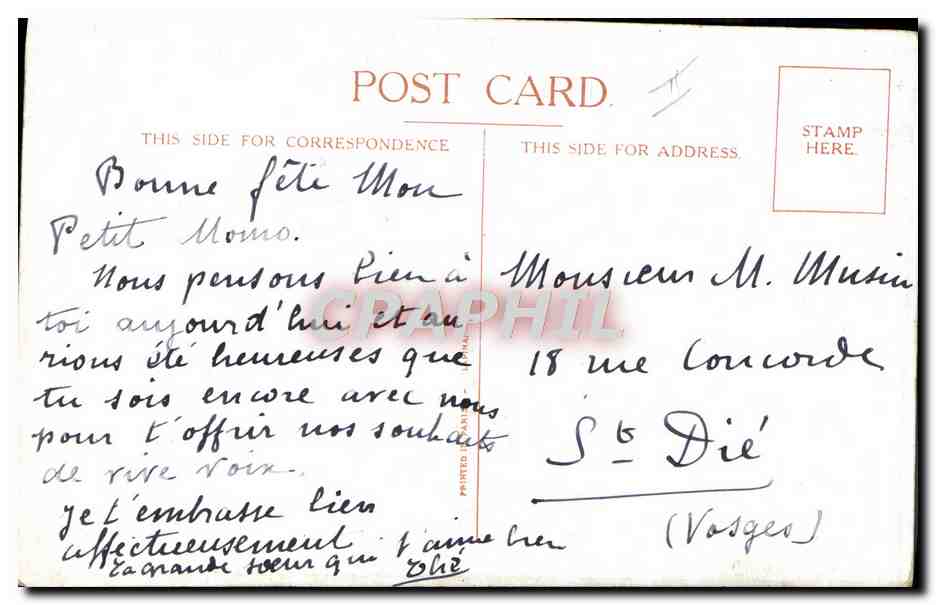 POST CARD.
THIS SIDE FOR CORRESPONDENCE
THIS SIDE FOR ADDRESS.
STAMP
HERE.
Bonne fête Mon
Petit Momo.
Nous pensons bien à
toi aujourd'hui et au
rions été heureuses que
tu sois encore avec nous
pour t'offrir nos souhaits
de vive voix.
Je t'embrasse bien
affectueusement
Ta grande sœur qui t'aime bien
Monsieur M. Musin
18 rue Concorde
St Dié
(Vosges)
CPAPHIL
PRINTED IN PARIS